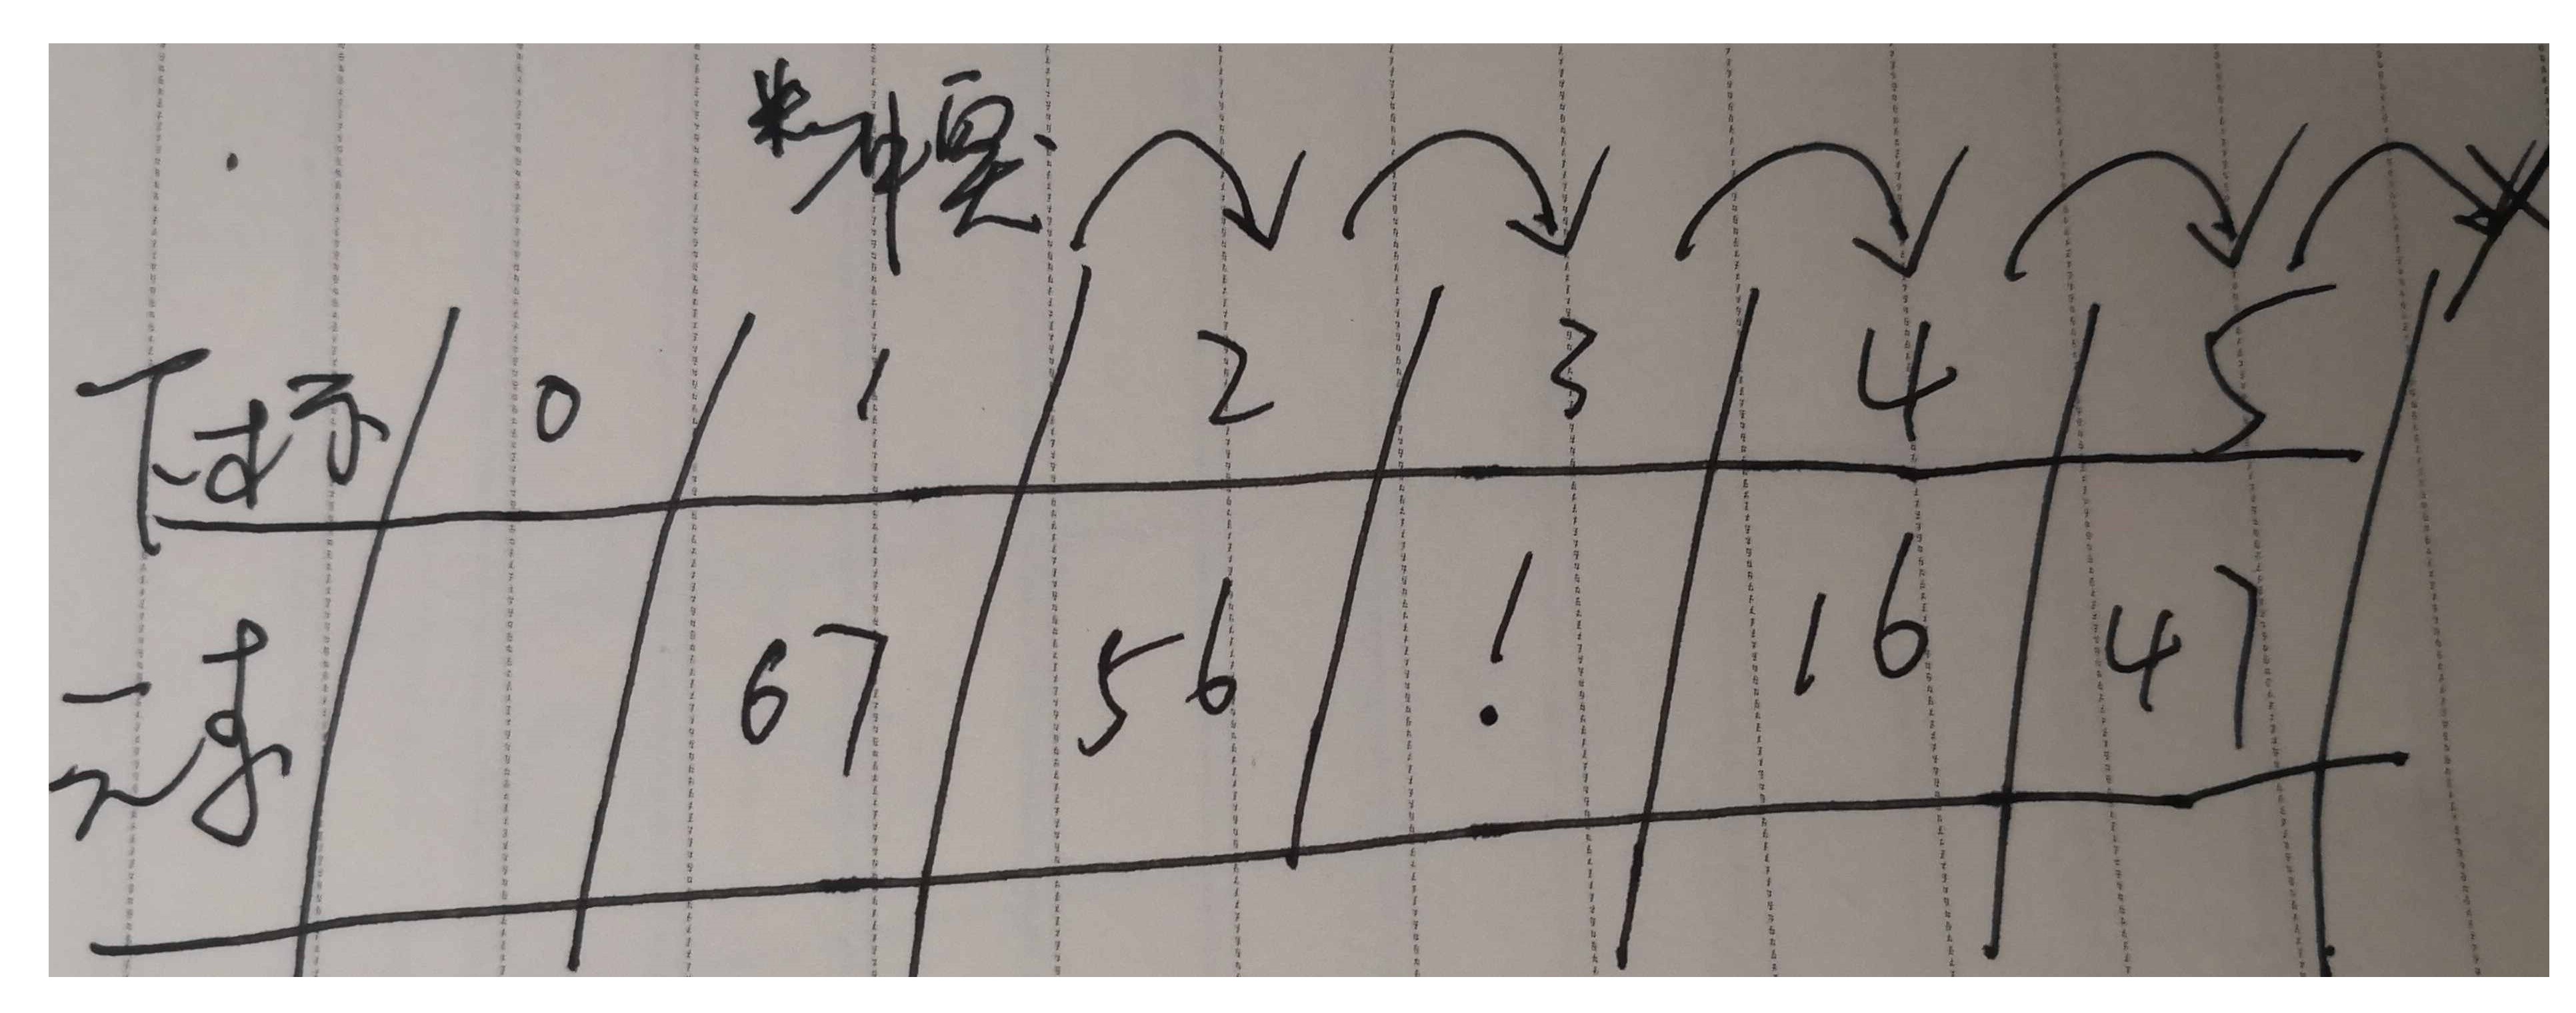 下标 0 1 2 3 4 5
元素 67 56 ! 16 47